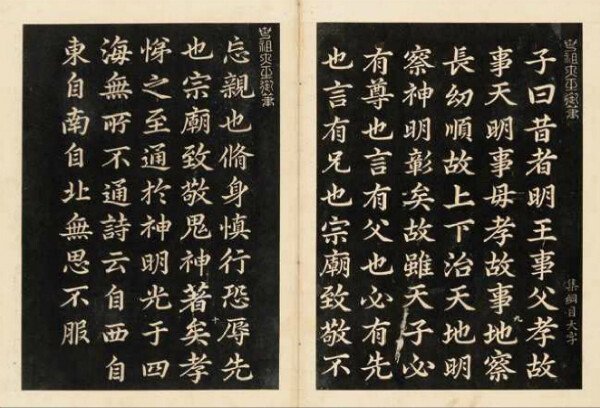 集綱目大字
子曰昔者明王事父孝故
事天明事毋孝故事地察
九
長幼順故上下治天地明
察神明彰矣故雖天子必
有尊也言有父也必有先
也言有兄也宗廟致敬不
忘親也脩身慎行恐辱先
也宗廟致敬鬼神著矣孝
十
悌之至通於神明光于四
海無所不通詩云自西自
東自南自北無思不服